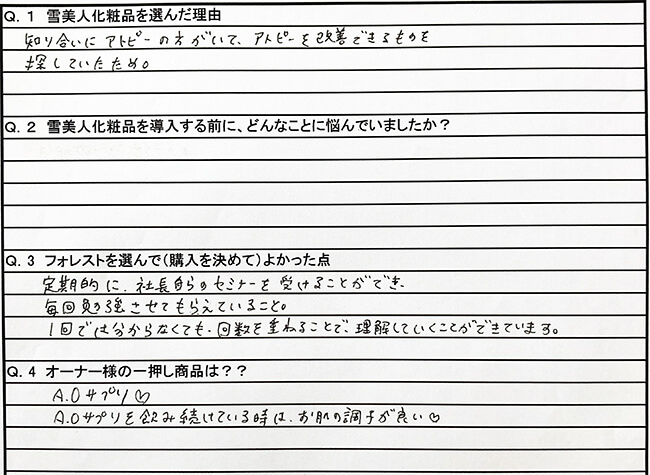 Q.1 雪美人化粧品を選んだ理由
知り合いにアトピーの方がいて、アトピーを改善できるものを
探していたため。
Q.2 雪美人化粧品を導入する前に、どんなことに悩んでいましたか？
Q.3 フォレストを選んで(購入を決めて)よかった点
定期的に、社長自らのセミナーを受けることができ、
毎回勉強させてもらえていること。
1回では分からなくても、回数を重ねることで、理解していくことができています。
Q.4 オーナー様の一押し商品は？？
A.Oサプリ♡
A.Oサプリを飲み続けている時は、お肌の調子が良い♡